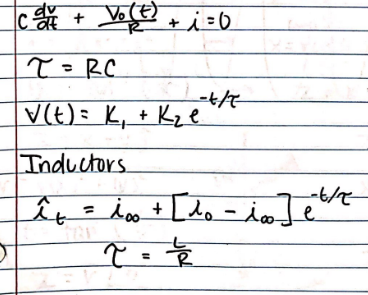 C dv/dt + V₀(t)/R + i = 0
τ = RC
V(t) = K₁ + K₂ e^-t/τ
Inductors
î_t = i_∞ + [i₀ - i_∞] e^-t/τ
τ = L/R